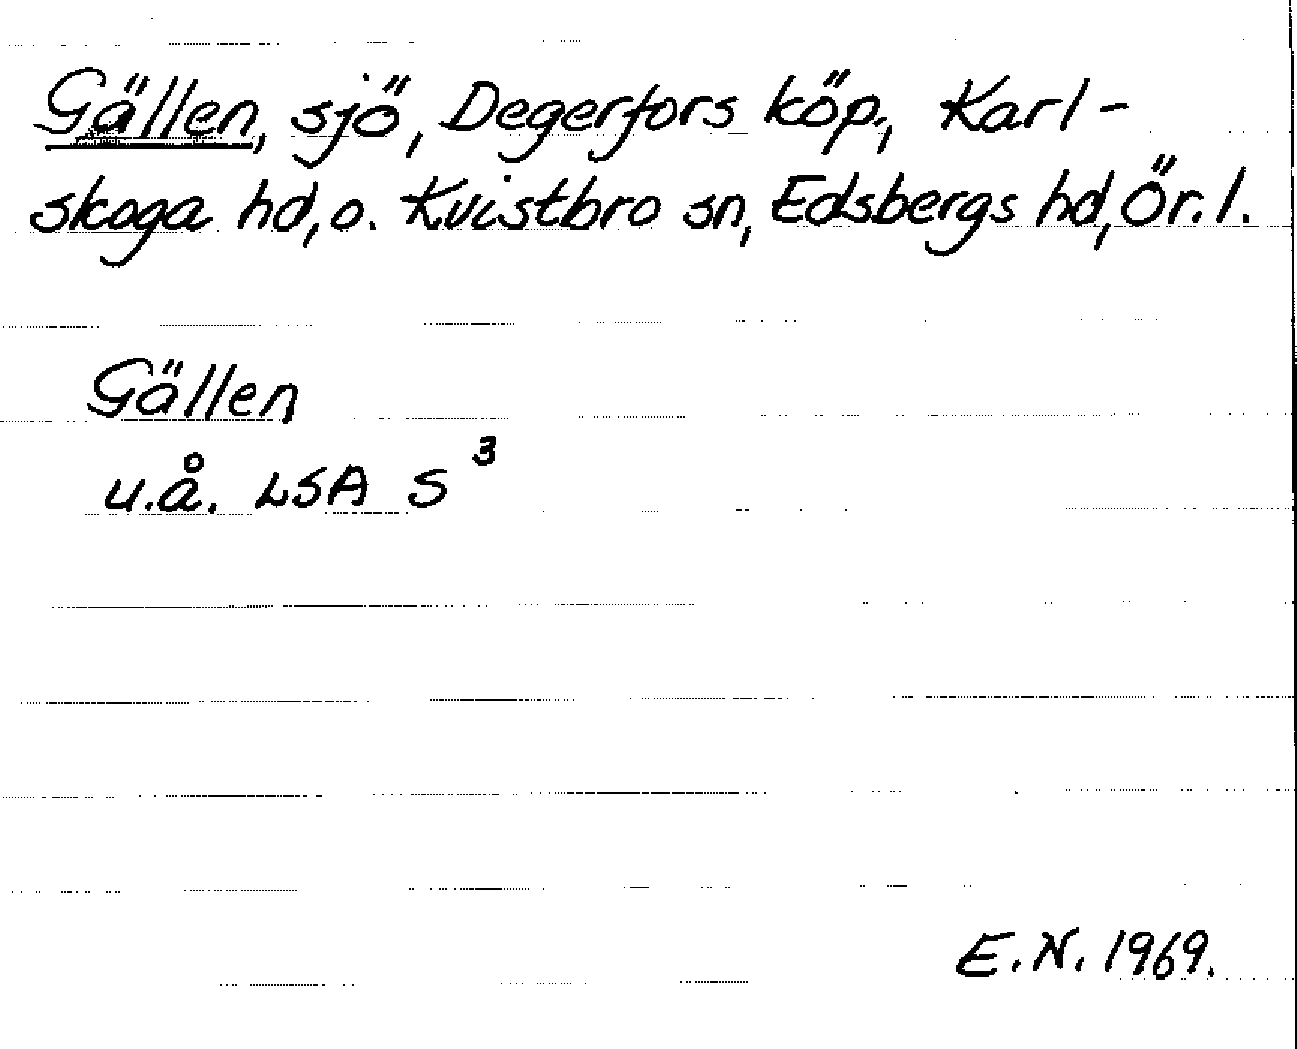 Gällen, sjö, Degerfors köp., Karl-
skoga hd, o. Kvistbro sn, Edsbergs hd, Ör. l.
Gällen
u.å. LSA S 3
E.N. 1969.